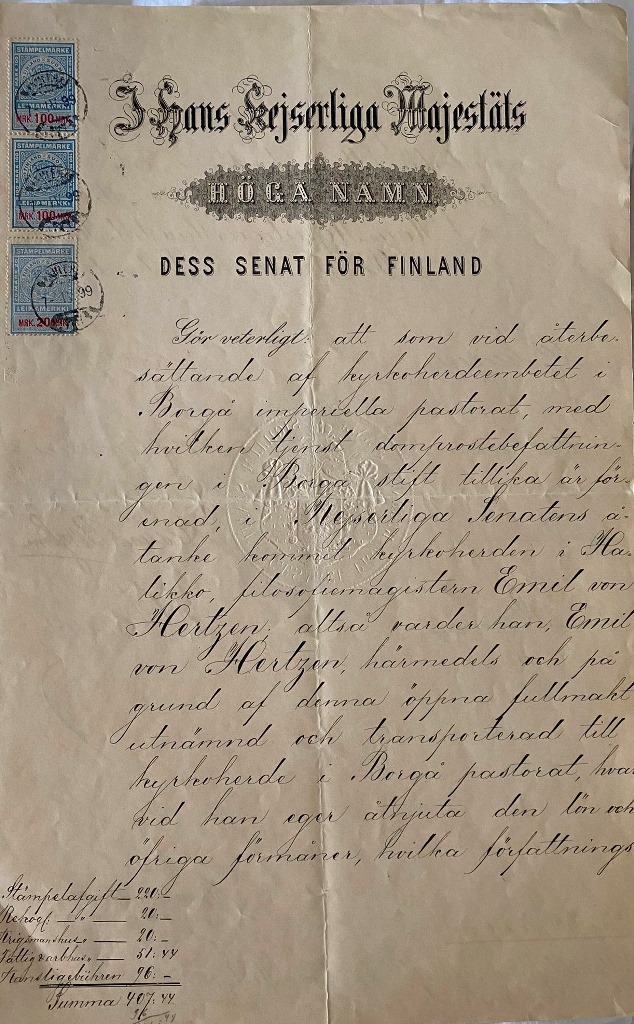 STÄMPELMÄRKE
MRK. 100 MRK.
LEIMAMERKKI
STÄMPELMÄRKE
MRK. 100 MRK.
LEIMAMERKKI
STÄMPELMÄRKE
99
LEIMAMERKKI
MRK. 20 MRK.
I Hans Kejserliga Majestäts
HÖGA NAMN
DESS SENAT FÖR FINLAND
Gör veterligt: att som vid återbe-
sättande af kyrkoherdeembetet i
Borgå imperiella pastorat, med
hvilken tjenst domprostebefattnin-
gen i Borgå stift tillika är för-
enad, i Kejserliga Senatens å-
tanke kommit kyrkoherden i Ha-
likko, filosofiemagistern Emil von
Hertzen; altså varder han, Emil
von Hertzen, härmedels och på
grund af denna öppna fullmakt
utnämnd och transporterad till
kyrkoherde i Borgå pastorat, hvar
vid han eger åtnjuta den lön och
öfriga förmåner, hvilka författnings
Stämpelafgift — 220:—
Rekogl. — „ — 20:—
Krigsmanshus „ — 20:—
Fattig o arbhus „ — 51:44
Kansligebühren 96:—
Summa 407:44
36